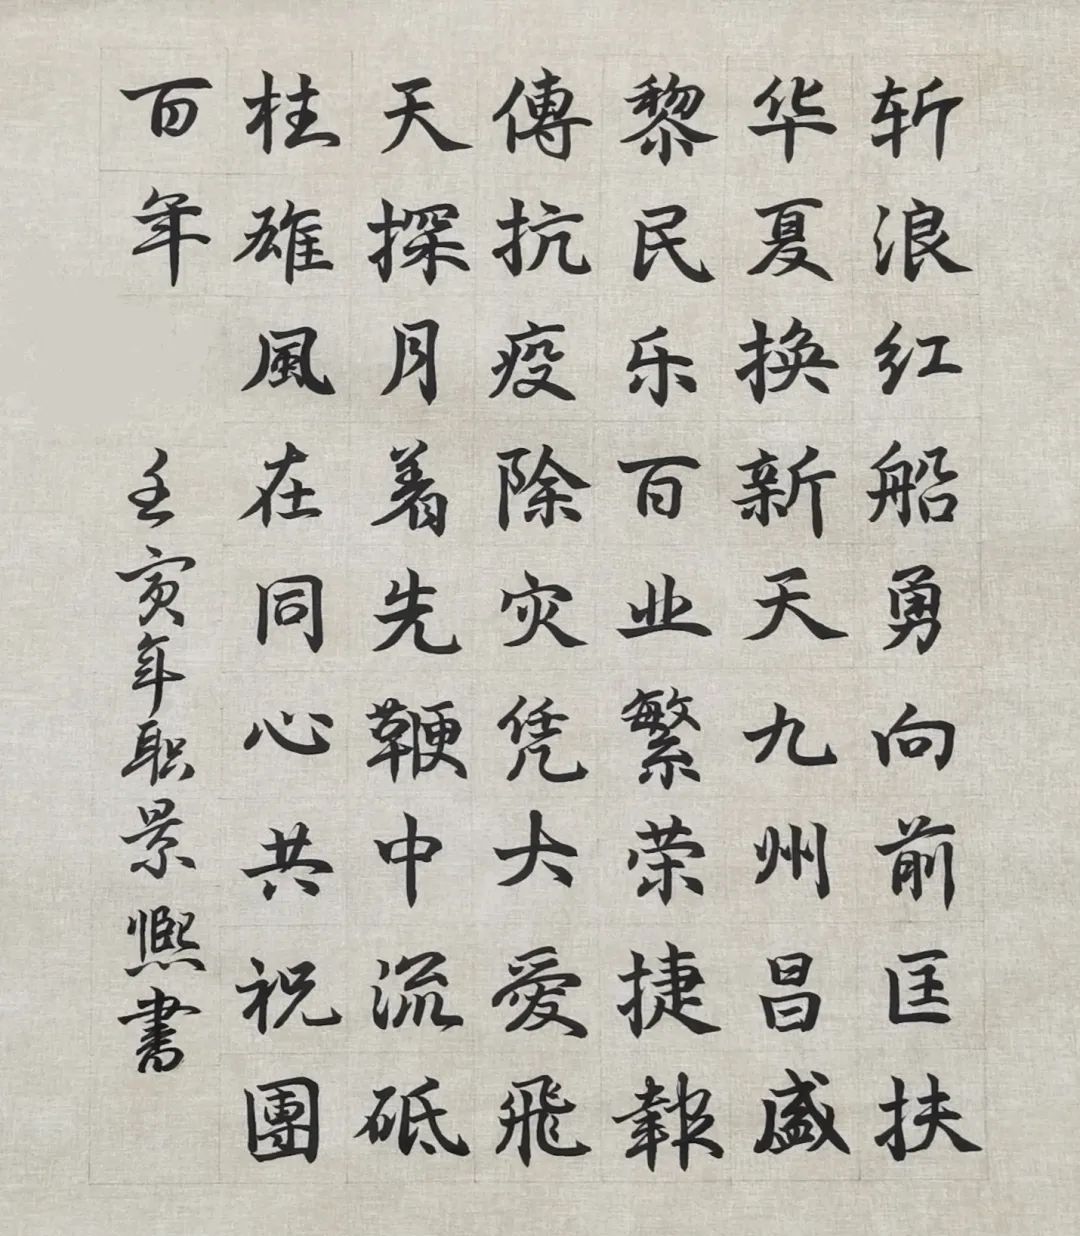 斩浪红船勇向前匡扶
华夏换新天九州昌盛
黎民乐百业繁荣捷報
傳抗疫除灾凭大愛飛
天探月着先鞭中流砥
柱雄風在同心共祝團
百年
壬寅年职景熙書